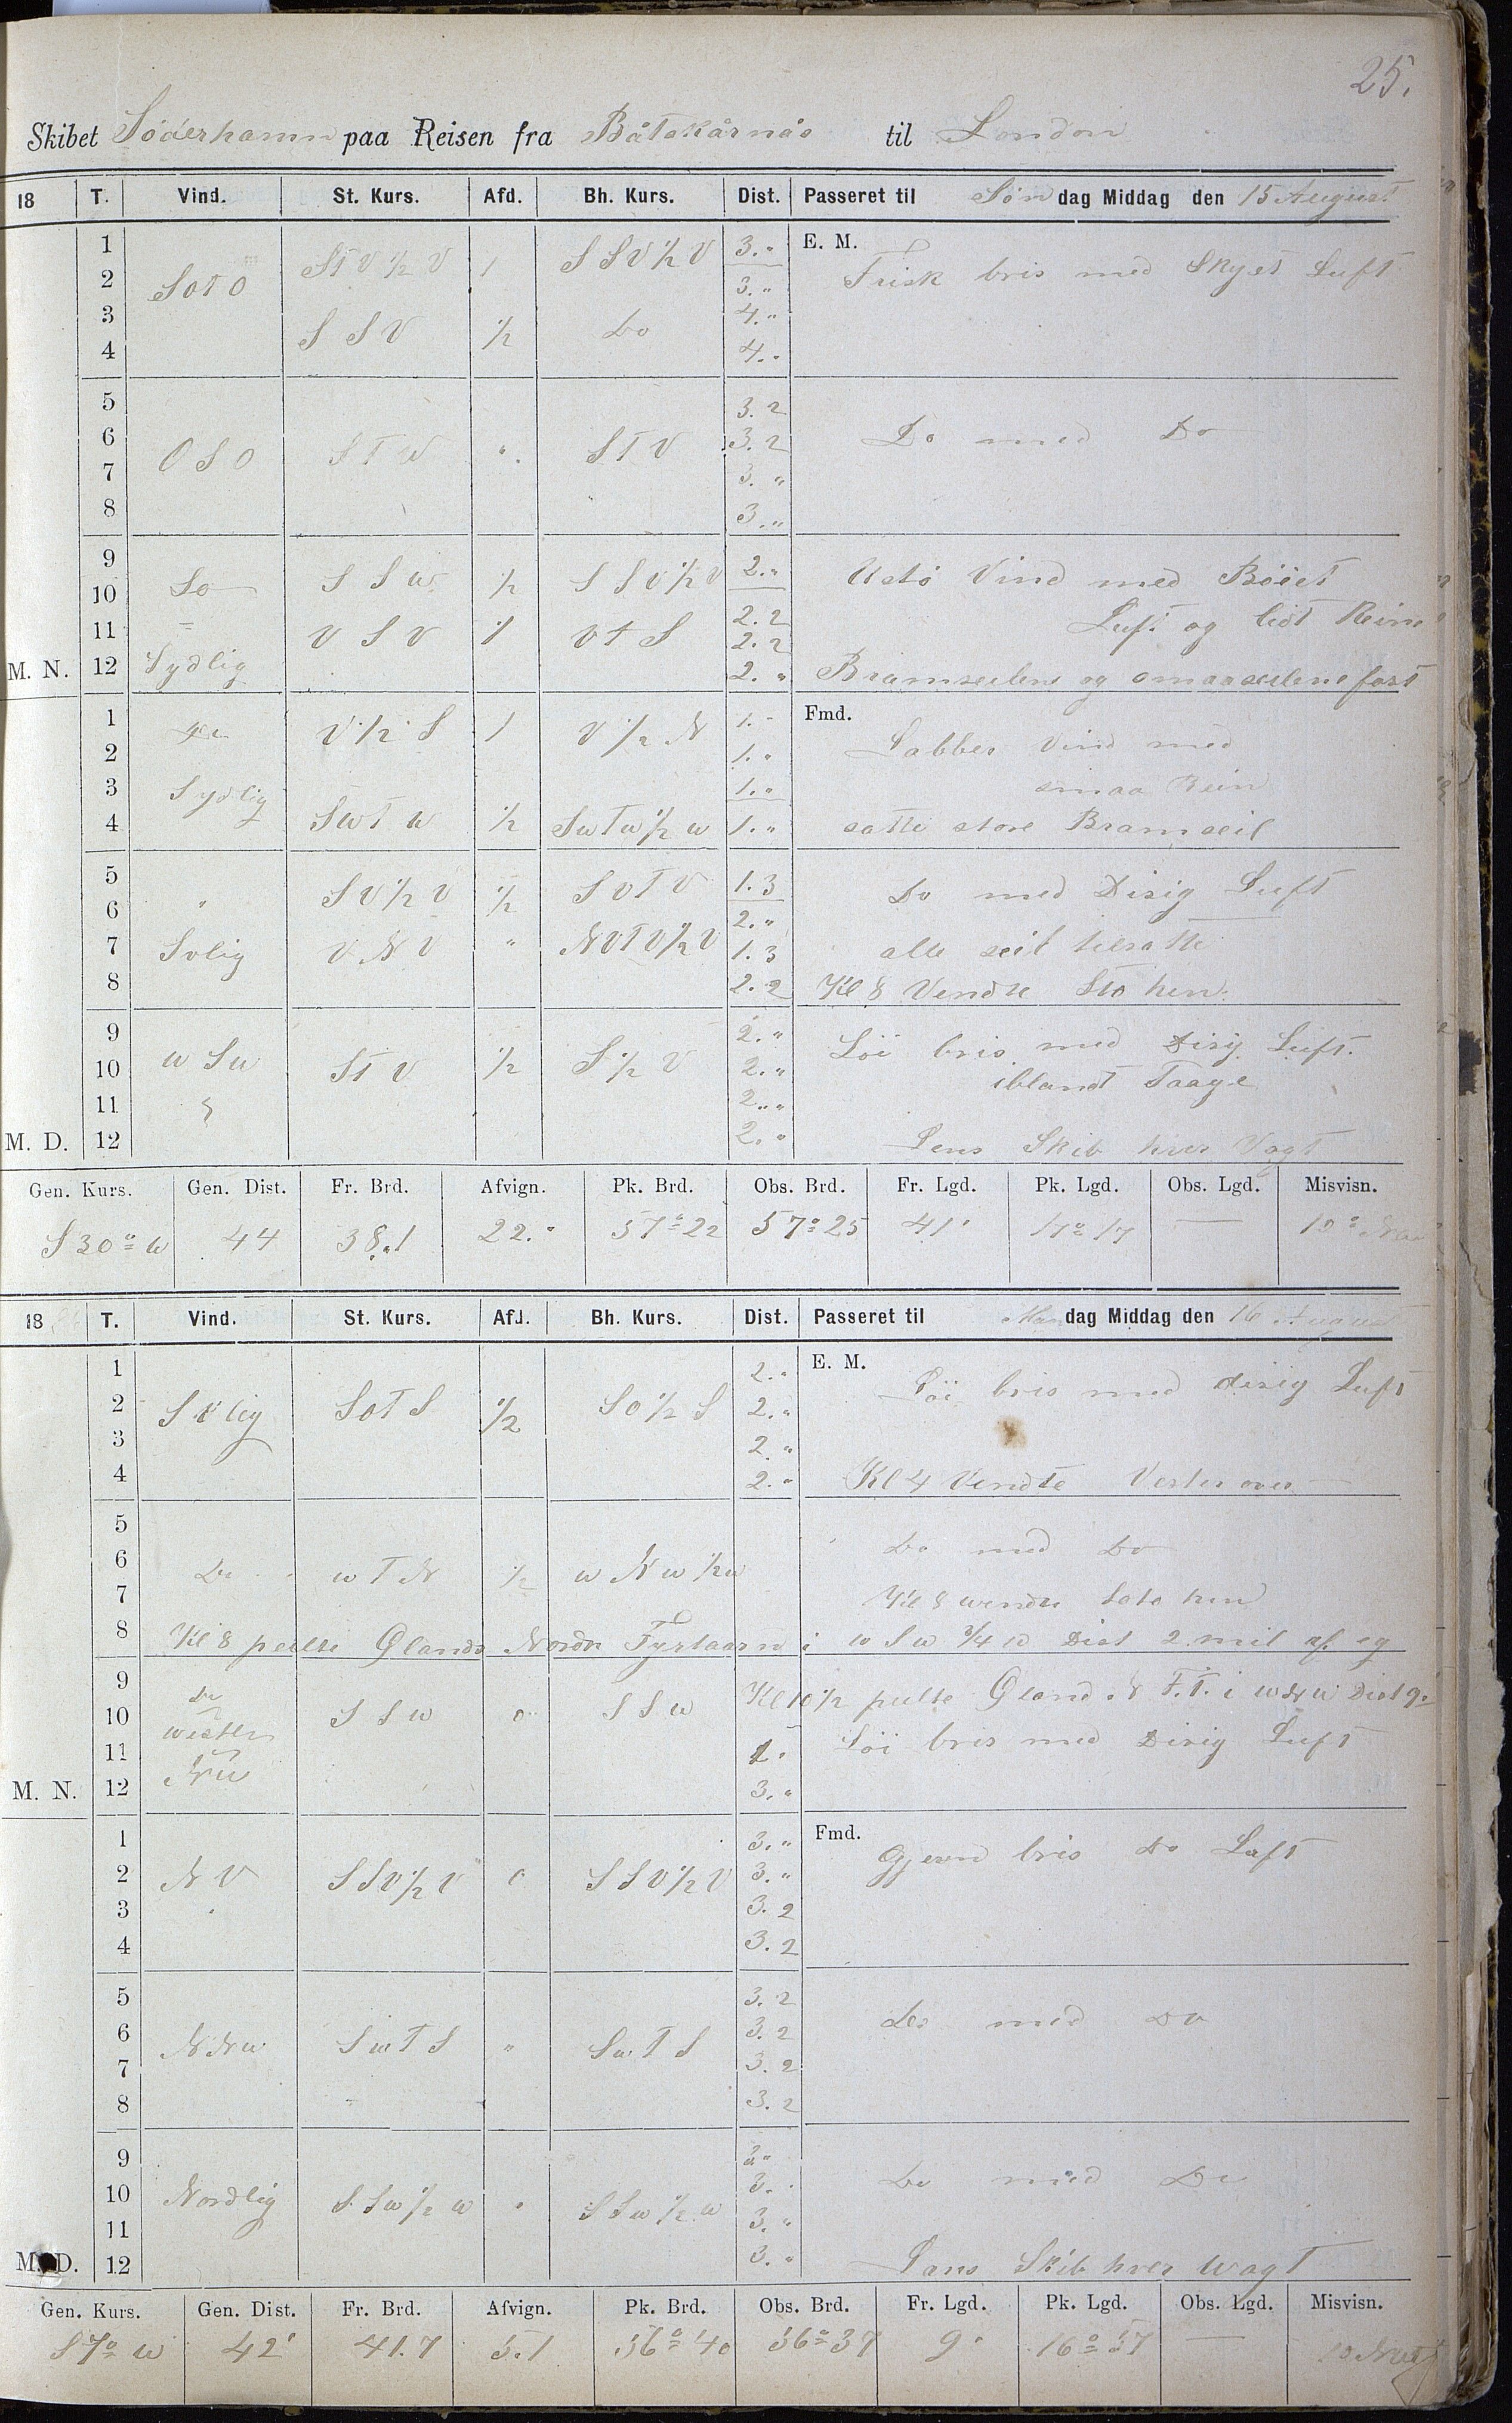 25.
Skibet Söderhamn paa Reisen fra Båtskärnäs til London
18 T. Vind. St. Kurs. Afd. Bh. Kurs. Dist. Passeret til Søndag Middag den 15 August
1 3.„ E. M.
2 SOTO STV½V 1 SSV½V 3.„ Frisk bris med Skyet Luft
3 SSV ½ Do 4.„
4 4.„
5 3.2
6 OSO STW „ STV 3.2 Do med Do
7 3.„
8 3.„
9 2.„
10 Do SSW ½ SSV½V 2.2 Ustø Vind med Böiet
11 VSV 1 VTS 2.2 Luft og lidt Rein
M. N. 12 Sydlig 2.„ Bramseilene og smaaseilene fast
1 V½S 1 V½N 1.„ Fmd.
2 1.„ Labber Vind med
3 Sydlig 1.„ smaa Rein
4 SWTW ½ SWTW½W 1.„ satte store Bramseil
5 SV½V ½ SVTV 1.3 Do med Disig Luft
6 „ 2.„
7 Svlig VNV „ NVTV½V 1.3 alle seil tilsatte
8 2.2 Kl 8 Vendte Sto hen.
9 2.„
10 WSW STV ½ S½V 2.„ Löi bris med Disig Luft.
11 2.„ iblandt Taage
M. D. 12 2.„ Lens Skib hver Vagt
Gen. Kurs. Gen. Dist. Fr. Brd. Afvign. Pk. Brd. Obs. Brd. Fr. Lgd. Pk. Lgd. Obs. Lgd. Misvisn.
S 30° W 44 38.1 22.„ 57°22 57°25 41' 17°17 — 10°
18 T. Vind. St. Kurs. Afd. Bh. Kurs. Dist. Passeret til Mandag Middag den 16 August
1 2.„ E. M.
2 SVlig SOTS ½ SO½S 2.„ Löi bris med disig Luft
3 2.„
4 2.„ Kl 4 Vendte Vester over
5
6 Do WTN ½ WNW½W Do med Do
7 Kl 8 wendte Soto hen
8 Kl 8 peilte Ølands Nordr Fyrtaarn i WSW ¾ W Dist 2 mil af og
9 Kl 10½ peilte Øland N F.T. i WNW Dist 9.
10 Do westlig SSW 0 SSW
11 NW 1.„ Löi bris med Disig Luft
M. N. 12 3.„
1 3.„ Fmd.
2 NV SSV½V 0 SSV½V 3.„ Gjevn bris Do Luft
3 3.2
4 3.2
5 3.2
6 NNW SWTS „ SWTS 3.2 Do med Do
7 3.2
8 3.2
9 3.„
10 Nordlig SSW½W „ SSW½W 3.„ Do med Do
11 3.„
M. D. 12 3.„ Lens Skib hver Wagt
Gen. Kurs. Gen. Dist. Fr. Brd. Afvign. Pk. Brd. Obs. Brd. Fr. Lgd. Pk. Lgd. Obs. Lgd. Misvisn.
S 7° W 42' 41.7 5.1 56°40 56°37 9' 16°57 — 10